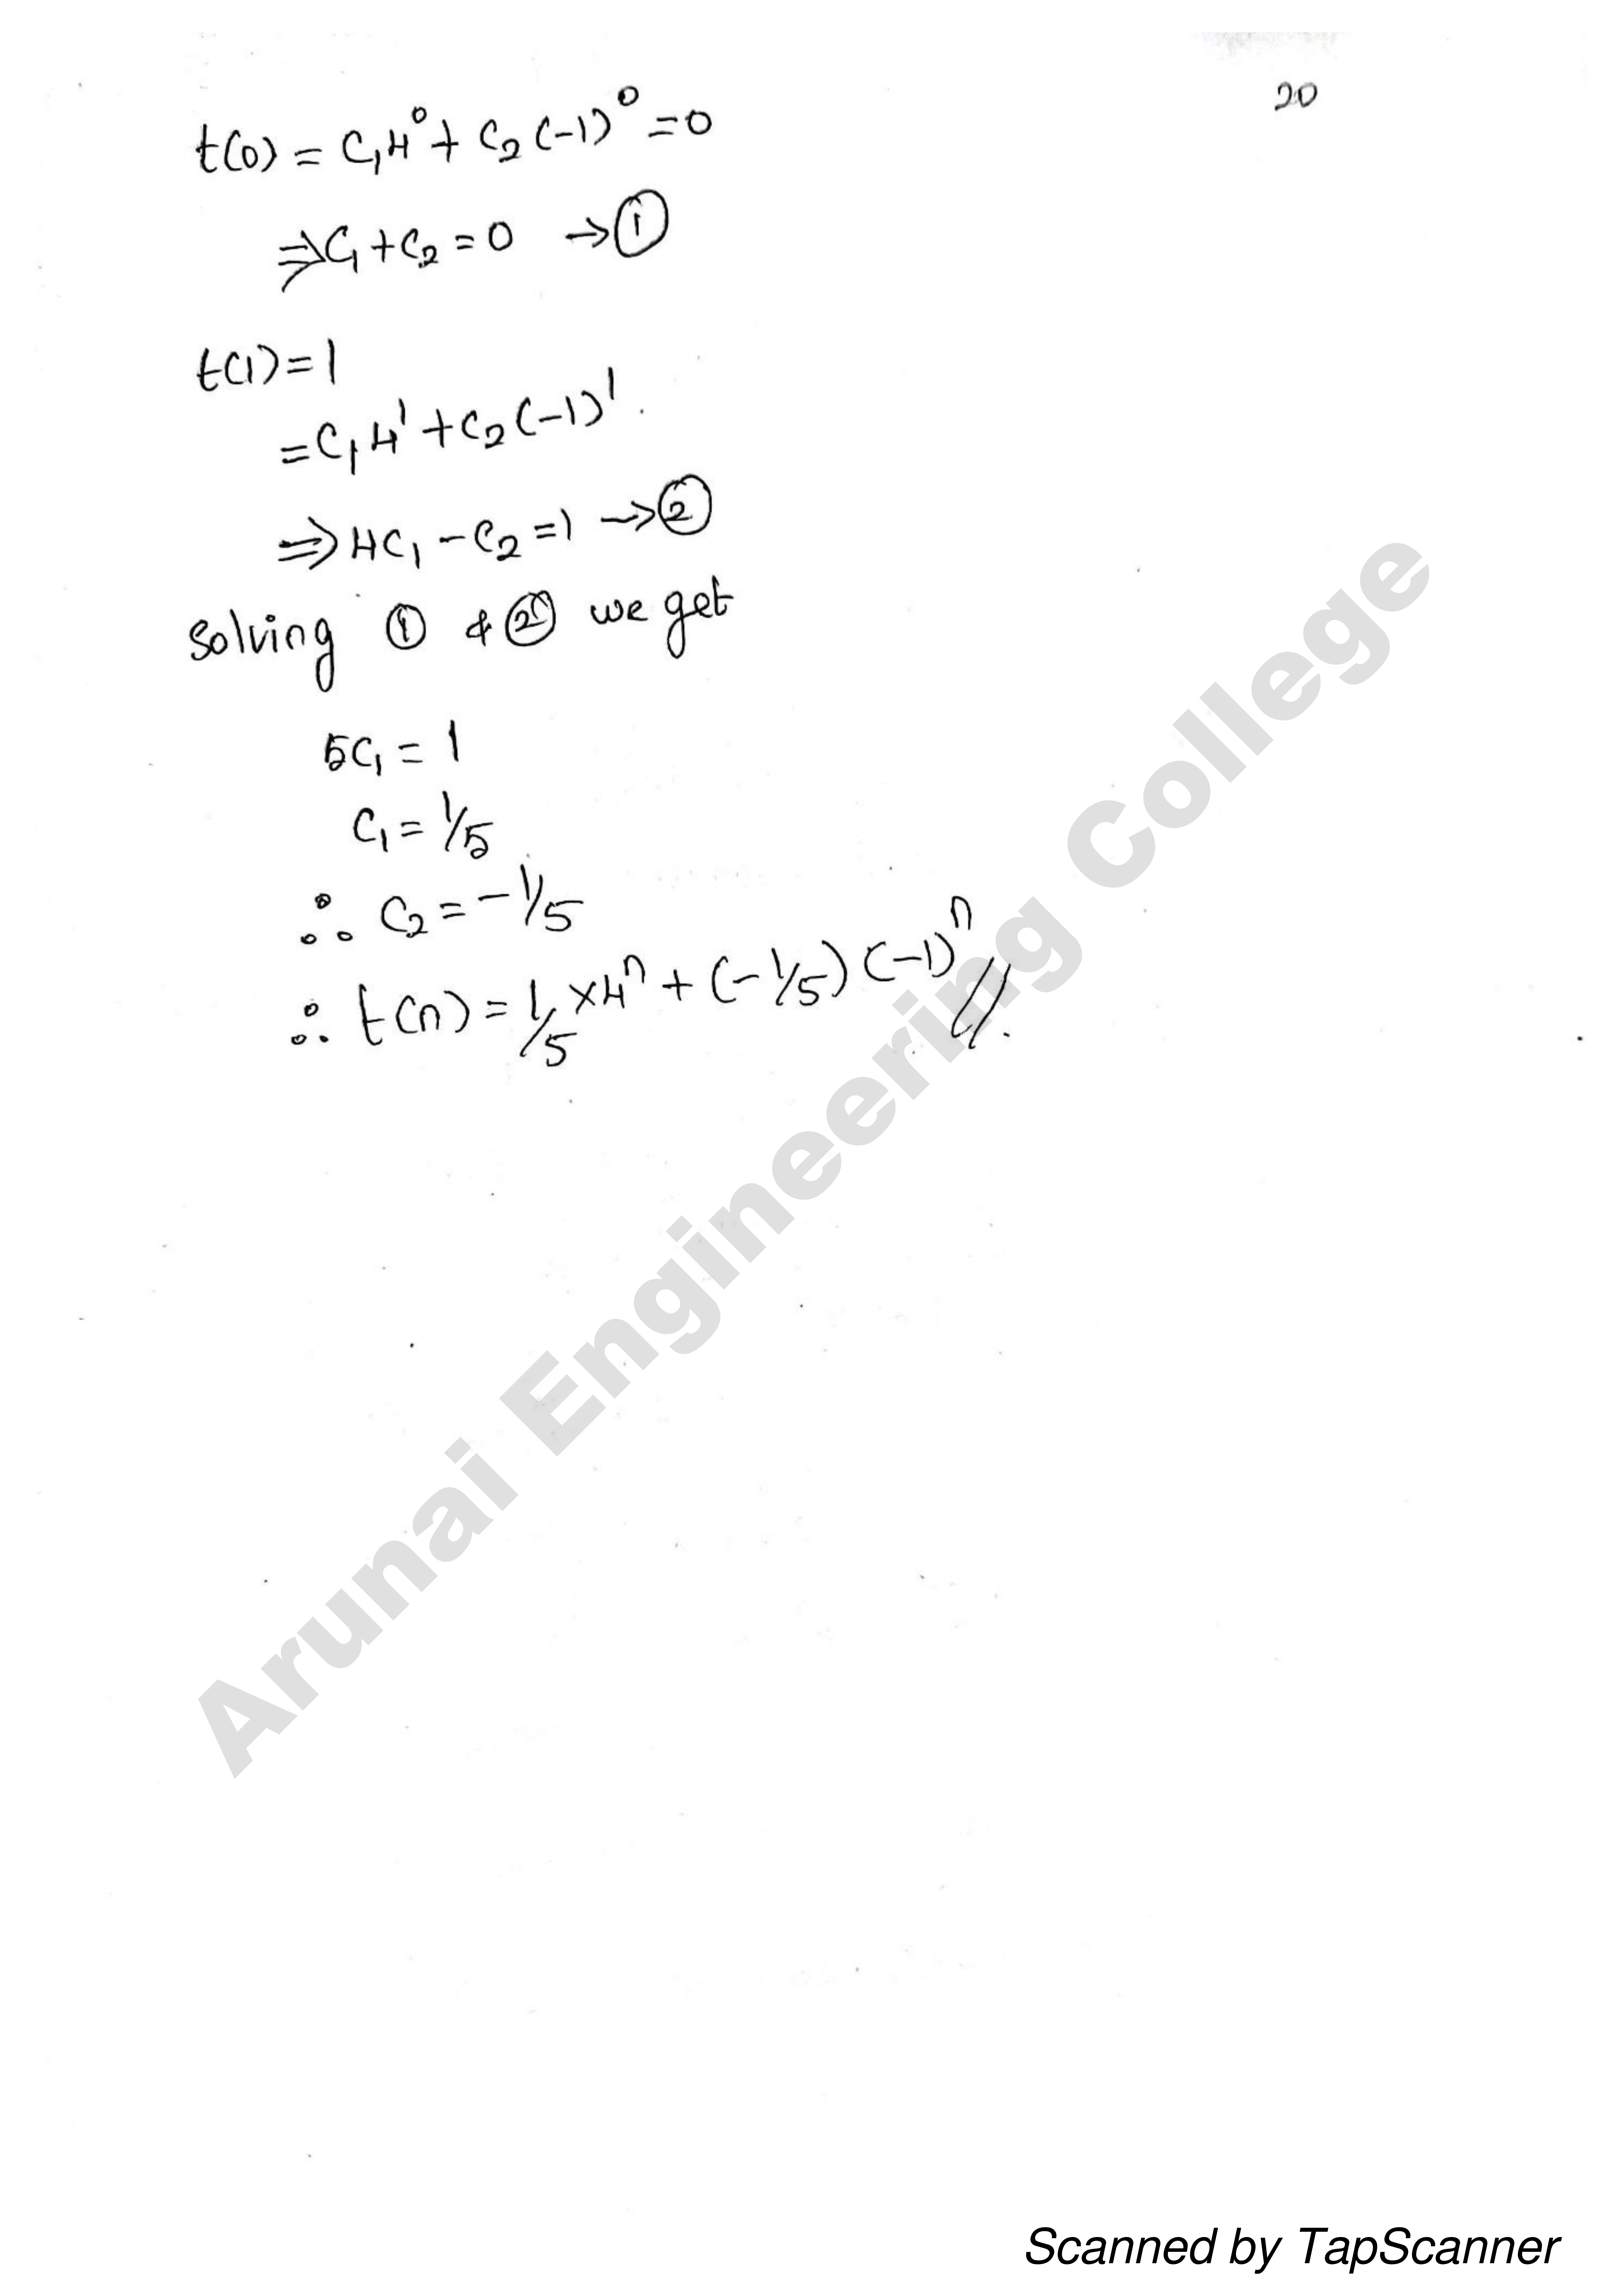 20
t(0) = C₁4⁰ + C₂(-1)⁰ = 0
⇒ C₁ + C₂ = 0 → ①
t(1) = 1
= C₁4¹ + C₂(-1)¹.
⇒ 4C₁ - C₂ = 1 → ②
Solving ① & ② we get
5C₁ = 1
C₁ = 1/5
∴ C₂ = -1/5
∴ t(n) = 1/5 × 4ⁿ + (-1/5) (-1)ⁿ //.
Arunai Engineering College
Scanned by TapScanner